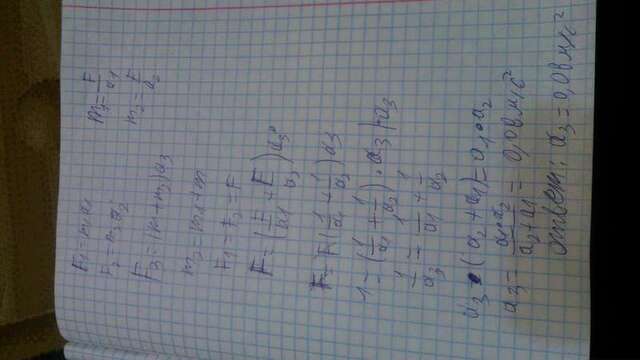 F₁ = m₁a₁
m₁ = F/a₁
F₂ = m₂a₂
m₂ = F/a₂
F₃ = (m + m₂)a₃
m₂ = m₁ + m
F₁ = F₂ = F
F = (F/a₁ + F/a₂)a₃
F = F(1/a₁ + 1/a₂)a₃
1 = (1/a₁ + 1/a₂) · a₃ | ÷a₃
1/a₃ = 1/a₁ + 1/a₂
a₃ · (a₂ + a₁) = a₁ · a₂
a₃ = a₁·a₂/a₂+a₁ = 0,08 м/с²
ответ: a₃ = 0,08 м/с²